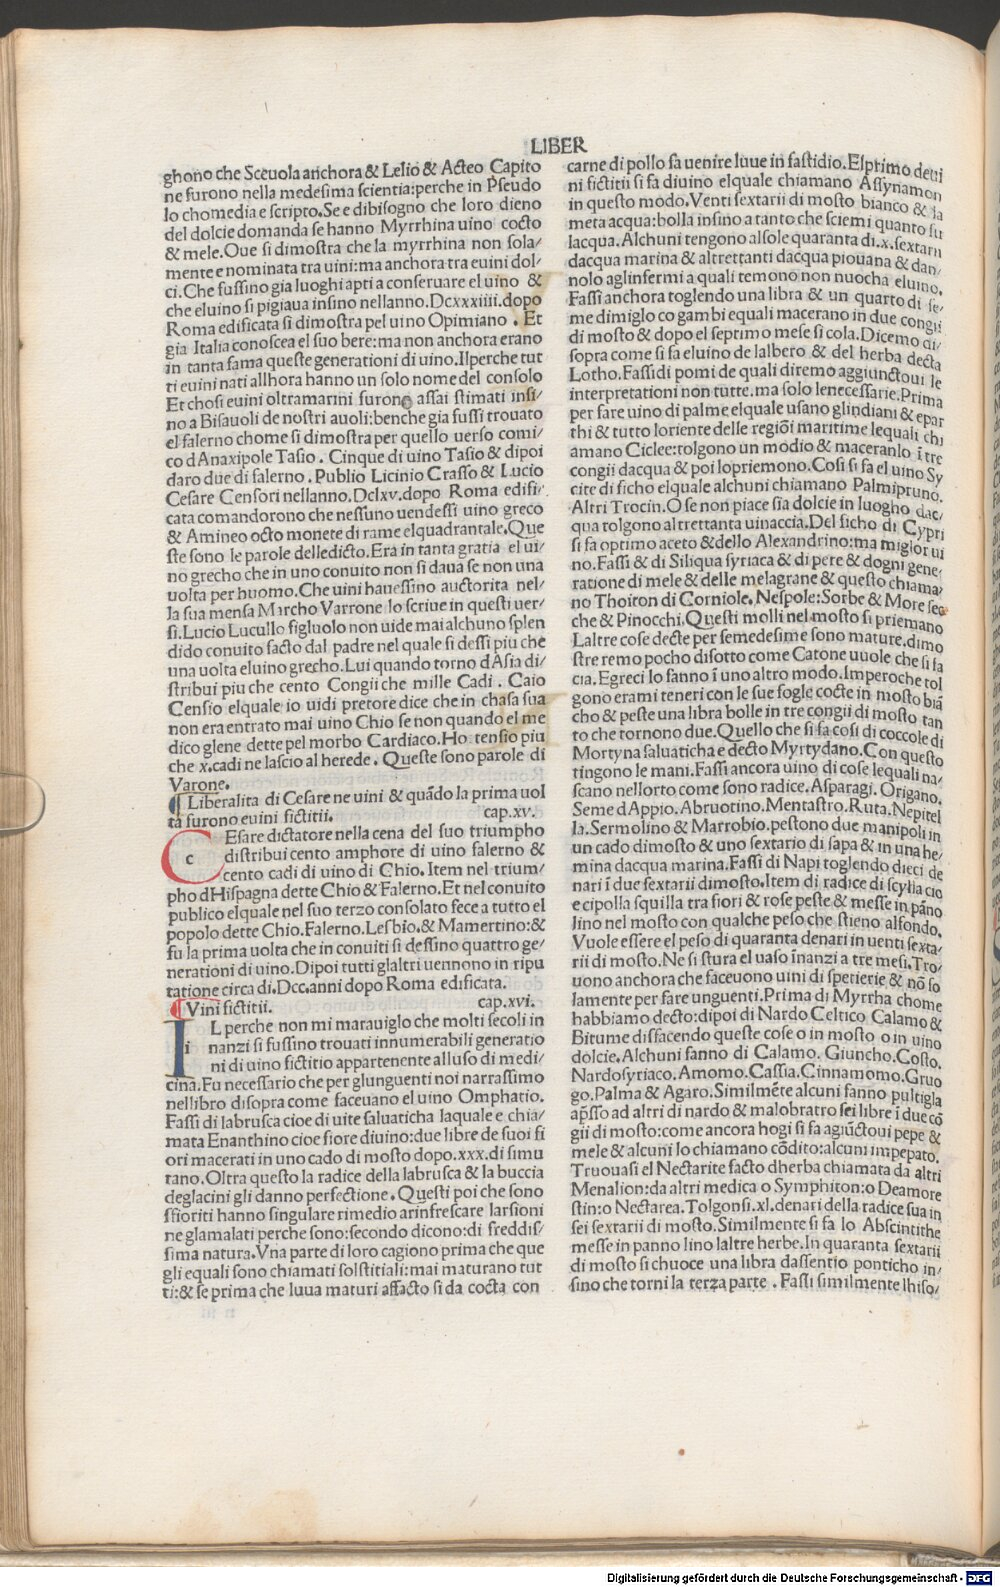 LIBER
ghono che Sceuola anchora & Lelio & Acteo Capito
ne furono nella medesima scientia:perche in Pseudo
lo chomedia e scripto.Se e dibisogno che loro dieno
del dolcie domanda se hanno Myrrhina uino cocto
& mele.Oue si dimostra che la myrrhina non sola/
mente e nominata tra uini:ma anchora tra euini dol/
ci.Che fussino gia luoghi apti a conseruare el uino &
che eluino si pigiaua insino nellanno.Dcxxxiiii.dopo
Roma edificata si dimostra pel uino Opimiano . Et
gia Italia conoscea el suo bere:ma non anchora erano
in tanta fama queste generationi di uino.Ilperche tut
ti euini nati allhora hanno un solo nome del consolo
Et chosi euini oltramarini furono assai stimati insi/
no a Bisauoli de nostri auoli:benche gia fussi trouato
el falerno chome si dimostra per quello uerso comi/
co dAnaxipole Tasio . Cinque di uino Tasio & dipoi
daro due di falerno . Publio Licinio Crasso & Lucio
Cesare Censori nellanno.Dclxv.dopo Roma edifi/
cata comandorono che nessuno uendessi uino greco
& Amineo octo monete di rame elquadrantale.Que
ste sono le parole delledicto.Era in tanta gratia el ui/
no grecho che in uno conuito non si daua se non una
uolta per huomo.Che uini hauessino auctorita nel/
la sua mensa Marcho Varrone lo scriue in questi uer/
si.Lucio Lucullo figluolo non uide mai alchuno splen
dido conuito facto dal padre nel quale si dessi piu che
una uolta eluino grecho.Lui quando torno dAsia di/
stribui piu che cento Congii che mille Cadi . Caio
Censio elquale io uidi pretore dice che in chasa sua
non era entrato mai uino Chio se non quando el me
dico glene dette pel morbo Cardiaco.Hortensio piu
che x.cadi ne lascio al herede . Queste sono parole di
Varone.
¶ Liberalita di Cesare ne uini & quādo la prima uol
ta furono euini fictitii. cap.xv.
c
CEsare dictatore nella cena del suo triumpho
distribui cento amphore di uino falerno &
cento cadi di uino di Chio.Item nel trium/
pho dHispagna dette Chio & Falerno.Et nel conuito
publico elquale nel suo terzo consolato fece a tutto el
popolo dette Chio.Falerno.Lesbio.& Mamertino:&
fu la prima uolta che in conuiti si dessino quattro ge/
nerationi di uino.Dipoi tutti glaltri uennono in ripu
tatione circa di.Dcc.anni dopo Roma edificata.
¶ Vini fictitii. cap.xvi.
i
IL perche non mi marauiglo che molti secoli in
nanzi si fussino trouati innumerabili generatio
ni di uino fictitio appartenente alluso di medi/
cina.Fu necessario che per glunguenti noi narrassimo
nellibro disopra come faceuano el uino Omphatio.
Fassi di labrusca cioe di uite saluaticha laquale e chia/
mata Enanthino cioe fiore diuino:due libre de suoi fi
ori macerati in uno cado di mosto dopo.xxx.di si mu
tano.Oltra questo la radice della labrusca & la buccia
deglacini gli danno perfectione . Questi poi che sono
sfioriti hanno singulare rimedio arinfrescare larsioni
ne glamalati perche sono:secondo dicono:di freddis/
sima natura.Vna parte di loro cagiono prima che que
gli equali sono chiamati solstitiali:mai maturano tut
ti:& se prima che luua maturi affacto si da cocta con
carne di pollo fa uenire luue in fastidio.Elprimo detti
ni fictitii si fa diuino elquale chiamano Assynamon
in questo modo.Venti sextarii di mosto bianco & la
meta acqua:bolla insino a tanto che sciemi quanto fu
lacqua.Alchuni tengono alsole quaranta di.x.sextarii
dacqua marina & altrettanti dacqua piouana & dan/
nolo aglinfermi a quali temono non nuocha eluino.
Fassi anchora toglendo una libra & un quarto di se/
me dimiglo co gambi equali macerano in due congii
di mosto & dopo el septimo mese si cola.Dicemo di/
sopra come si fa eluino de lalbero & del herba decta
Lotho.Fassi di pomi de quali diremo aggiunctoui le
interpretationi non tutte.ma solo lenecessarie.Prima
per fare uino di palme elquale usano glindiani & epar
thi & tutto loriente delle regiōi maritime lequali chi
amano Ciclee:tolgono un modio & maceranlo ī tre
congii dacqua & poi lopriemono.Cosi si fa el uino Sy
cite di ficho elquale alchuni chiamano Palmipruno.
Altri Trocin.O se non piace sia dolcie in luogho dac/
qua tolgono altrettanta uinaccia.Del ficho di Cypri
si fa optimo aceto & dello Alexandrino:ma miglor ui
no.Fassi & di Siliqua syriaca & di pere & dogni gene/
ratione di mele & delle melagrane & questo chiama/
no Thoiron di Corniole.Nespole:Sorbe & More sec
che & Pinocchi.Questi molli nel mosto si priemano
Laltre cose decte per semedesime sono mature.dimo
stre remo pocho disotto come Catone uuole che si fa
cia.Egreci lo fanno ī uno altro modo.Imperoche tol
gono erami teneri con le sue fogle cocte in mosto biā
cho & peste una libra bolle in tre congii di mosto tan
to che tornono due.Quello che si fa cosi di coccole di
Mortyna saluaticha e decto Myrtydano.Con questo
tingono le mani.Fassi ancora uino di cose lequali na/
scano nellorto come sono radice.Asparagi. Origano.
Seme dAppio.Abruotino.Mentastro.Ruta.Nepitel
la.Sermolino & Marrobio.pestono due manipoli in
un cado dimosto & uno sextario di sapa & in una he/
mina dacqua marina.Fassi di Napi toglendo dieci de
nari ī due sextarii dimosto.Item di radice di scylla cio
e cipolla squilla tra fiori & rose peste & messe in pāno
lino nel mosto con qualche peso che stieno alfondo.
Vuole essere el peso di quaranta denari in uenti sexta/
rii di mosto.Ne si stura el uaso īnanzi a tre mesi.Tro/
uono anchora che faceuono uini di spetierie & nō so
lamente per fare unguenti.Prima di Myrrha chome
habbiamo decto:dipoi di Nardo Celtico Calamo &
Bitume disfacendo queste cose o in mosto o in uino
dolcie.Alchuni fanno di Calamo. Giuncho.Costo.
Nardosyriaco.Amomo.Cassia.Cinnamomo.Gruo
go.Palma & Agaro.Similmēte alcuni fanno pultigla
ap̄sso ad altri di nardo & malobratro sei libre ī due cō
gii di mosto:come ancora hogi si fa agiūctoui pepe &
mele & alcuni lo chiamano cōdito:alcuni impepato.
Truouasi el Nectarite facto dherba chiamata da altri
Menalion:da altri medica o Symphiton:o Deamore
stin:o Nectarea.Tolgonsi.xl.denari della radice sua in
sei sextarii di mosto.Similmente si fa lo Abscintithe
messe in panno lino laltre herbe.In quaranta sextarii
di mosto si chuoce una libra dassentio ponticho in/
sino che torni la terza parte . Fassi similmente lhiso/
Digitalisierung gefördert durch die Deutsche Forschungsgemeinschaft - DFG